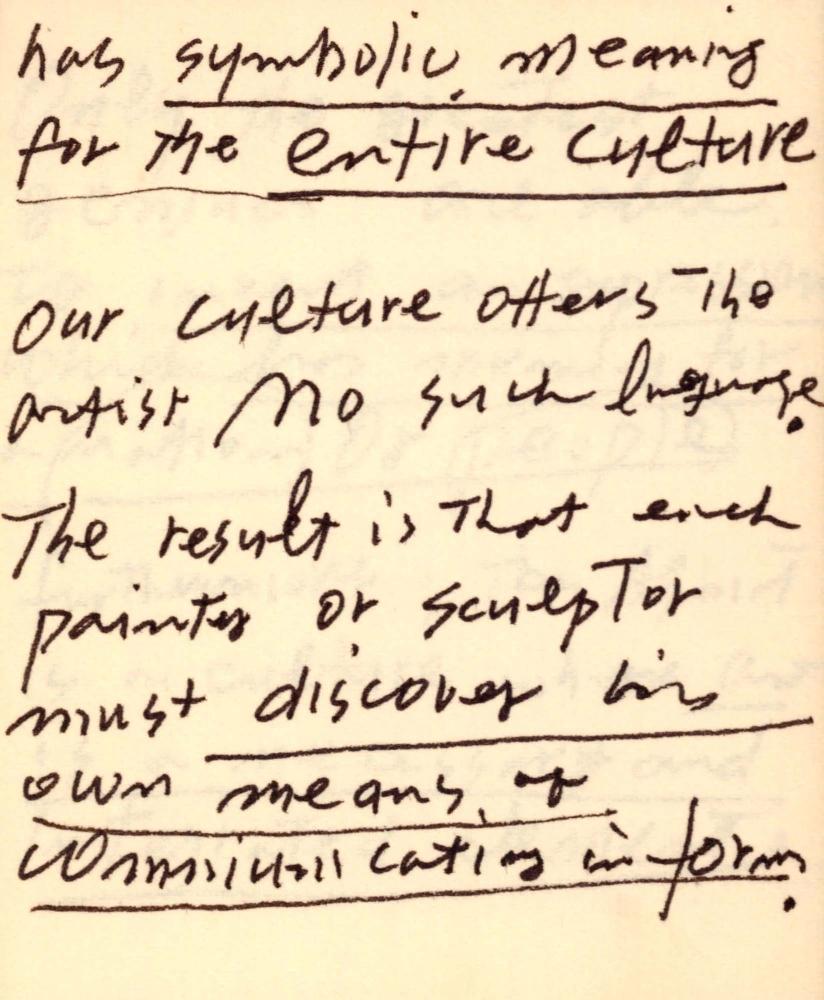 has symbolic meaning
for the entire culture
Our culture offers the
artist no such language.
The result is that each
painter or sculptor
must discover his
own means of
communicating in form.